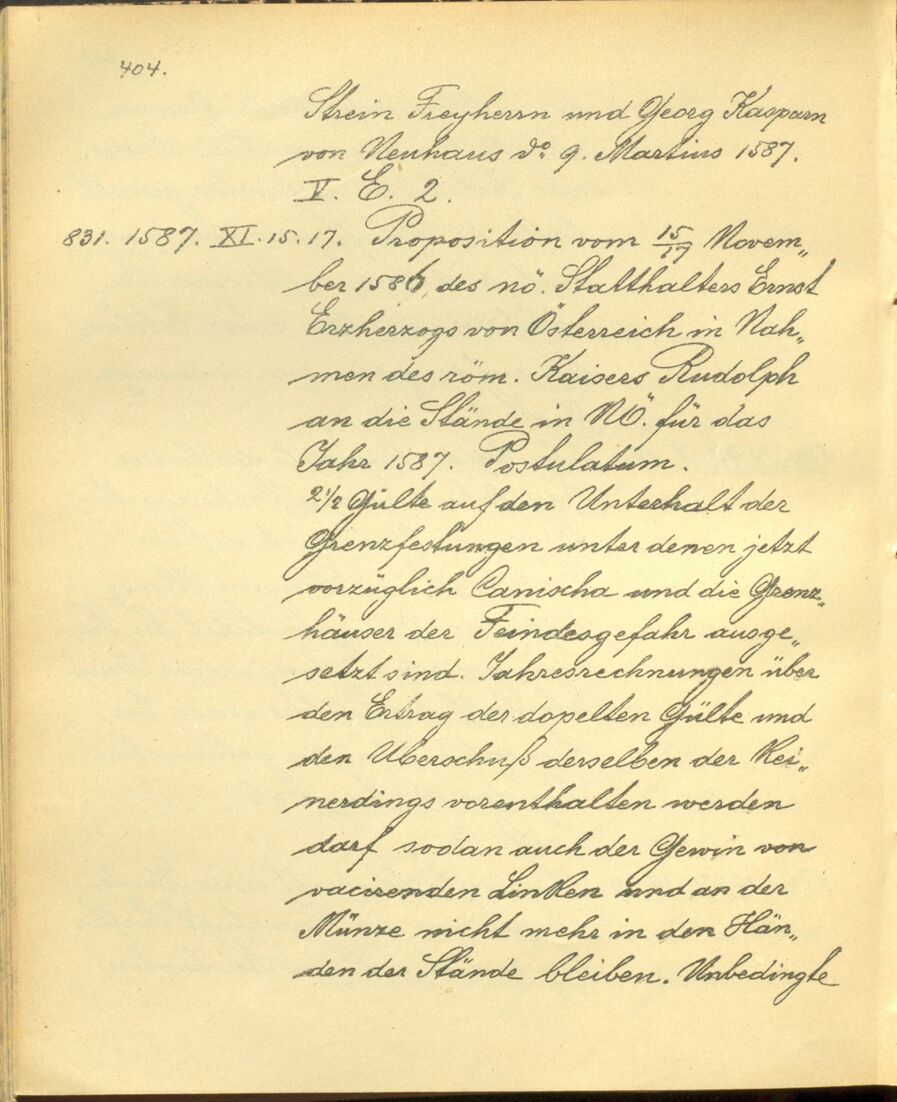 404.
Strein Freyherrn und Georg Kasparn
von Neuhaus do 9. Martius 1587.
V. E. 2.
831. 1587. XI. 15. 17. Proposition vom 15/17 Novem„
ber 1586, des nö. Statthalters Ernst
Erzherzogs von Österreich in Nah„
men des röm. Kaisers Rudolph
an die Stände in NÖ. für das
Jahr 1587. Postulatum.
2 1/2 Gülte auf den Unterhalt der
Grenzfestungen unter denen jetzt
vorzüglich Canischa und die Grenz„
häuser der Feindesgefahr ausge„
setzt sind. Jahresrechnungen über
den Ertrag der dopelten Gülte und
den Uberschuß derselben der Kei„
nerdings vorenthalten werden
darf sodan auch der Gewin von
vacirenden Linken und an der
Münze nicht mehr in den Hän„
den der Stände bleiben. Unbedingte